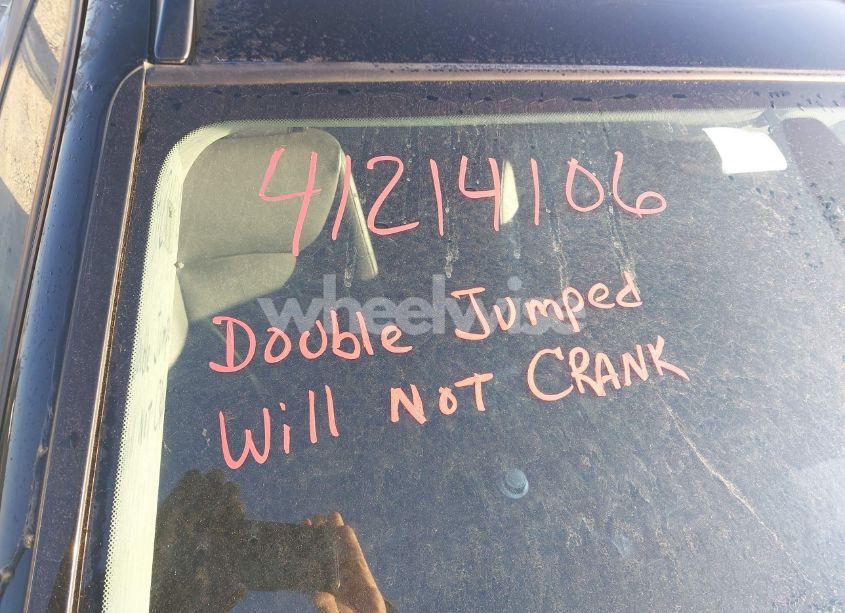 41214106
wheelwise
Double Jumped
Will NOT CRANK